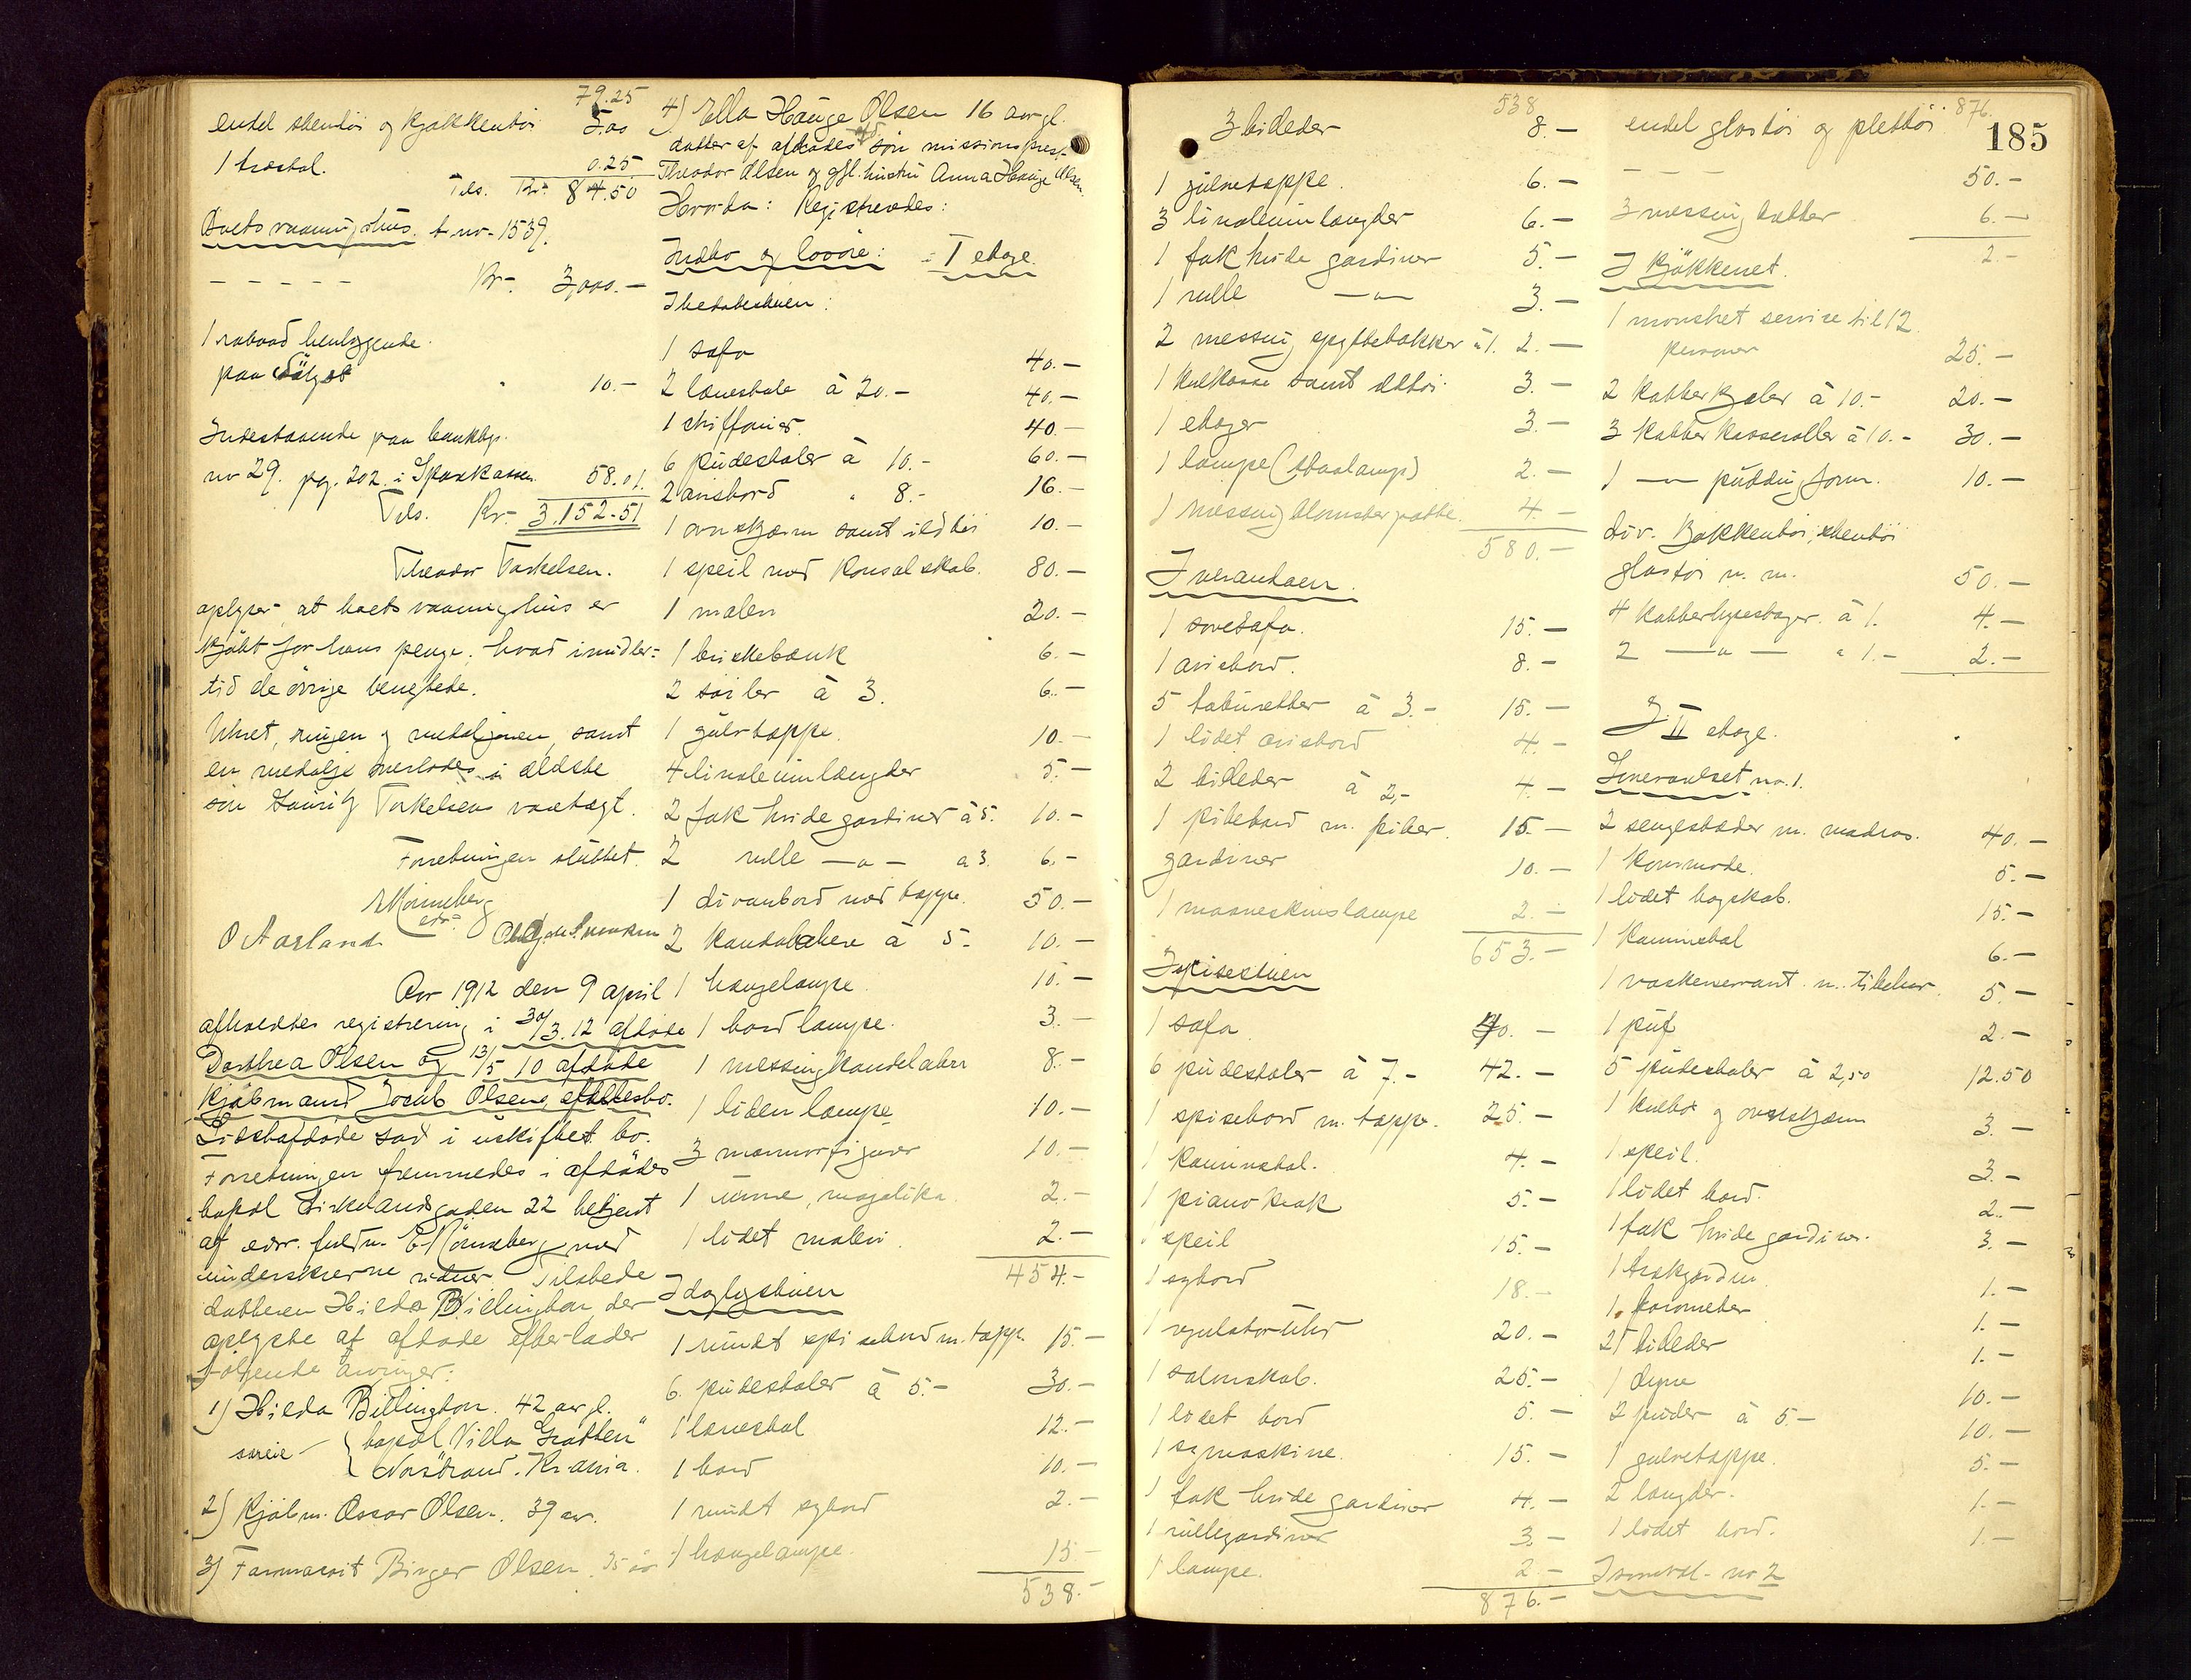 79.25
endel stentöi og kjøkkentöi 5.00
1 træstol. 0.25
Tils. Kr. 84.50
Boets vaaningshus. br. nr. 1539.
- - - - - Kr. 3,000.—
1 robaad henliggende
paa Sölyst " 10.—
Indestaaende paa bankbog.
nr 29. pg. 202. i Sparekassen 58.01
Tils. Kr. 3.152.51
Theodor Torkelsen.
oplyser at boets vaaningshus er
kjøbt for hans penge. hvad imidler=
tid de övrige benegtede.
Uhret, ringen og medaljonen, samt
en medalje overlodes i ældste
sön Lauritz Torkelsens varetægt.
Forretningen sluttet.
E Mönneberg
edr=
O Aarland
Aar 1912 den 9 april
afholdtes registrering i 30/3. 12 afdöde
Dorthea Olsen og 13/5 10 afdöde
Kjöbmand Jacob Olsens efterlesbo.
Sidstafdöde sad i uskiftet bo.
Forretningen fremmedes i afdödes
bopæl Birkelandsgaden 22 betjent
af edsv. fuldm. E Mönneberg med
underskrevne vidner Tilstede
datteren Hilda Billington der
oplyste at afdøde efterlader
følgende arvinger:
1) Hilda Billington. 42 aar gl.
sverie { bopæl Villa "Grotten"
Nordstrand. Kr.ania.
2) Kjöbm. Oscar Olsen. 39 aar.
3) Farmaceit Birger Olsen. 35 aar
4) Ella Hauge Olsen 16 aar gl.
datter af afdødes afd. sön missionsprest
Theodor Olsen og gjl. hustru Anna Hauge Olsen
Hvorda: Registreredes:
Indbo og lösöre: I etage
I bedstestuen:
1 sofa 40.—
2 lænestole à 20.— 40.—
1 chiffonier. 40.—
6 pudestoler à 10.— 60.—
2 avisbord " 8.— 16.—
1 ovnskjærm samt ildtöi 10.—
1 speil med konsolskab. 80.—
1 maleri 20.—
1 briskebænk 6.—
2 söiler à 3. 6.—
1 gulvtæppe. 10.—
4 linoleumlængder 5.—
2 fak hvide gardiner à 5. 10.—
2 rulle —"— à 3. 6.—
1 divanbord med tæppe. 50.—
2 kandelabere à 5.— 10.—
1 hængelampe. 10.—
1 bordlampe. 3.—
1 messingkandelaber 8.—
1 liden lampe 10.—
3 marmorfigurer 10.—
1 urne, majolika. 2.—
1 lidet maleri. 2.—
454.—
I daglystuen
1 rundt spisebord m. tæppe 15.—
6. pudestoler à 5.— 30.—
1 lænestol 12.—
1 bord 10.—
1 rundt sybord 2.—
1 hængelampe. 15.—
538.—
538
3 bileder 8.—
1 gulvetæppe. 6.—
3 linoleumlængder 6.—
1 fak hvide gardiner 5.—
1 rulle —"— 3.—
2 messing spyttebakker à 1. 2.—
1 kulkasse samt ildtöi. 3.—
1 etager 3.—
1 lampe (staalampe) 2.—
1 messingblomsterpotte. 4.—
580.—
I verandaen.
1 sovesofa. 15.—
1 avisbord. 8.—
5 taburetter à 3.— 15.—
1 lidet avisbord 4.—
2 bileder à 2.— 4.—
1 pibebord m. piber. 15.—
gardiner 10.—
1 maaneskinslampe 2.—
653.—
I spisestuen
1 sofa 40.—
6 pudestoler à 7.— 42.—
1 spisebord m. tæppe. 25.—
1 kaminstol. 4.—
1 pianokrak 5.—
1 speil 15.—
1 sybord 18.—
1 regulatoruhr 20.—
1 salonskab. 25.—
1 lidet bord 5.—
1 symaskine. 15.—
1 fak hvide gardiner 4.—
1 rullegardiner 3.—
1 lampe. 2.—
876.—
876.
185
endel glastöi og plettöi
- - - 50.—
3 messing potter 6.—
2.—
I kjökkenet.
1 mönstret servise til 12
personer 25.—
2 kobberkjeler à 10.— 20.—
3 kobberkasseroller à 10.— 30.—
1 —"— puddingform. 10.—
div. kjøkkentöi, stentöi
glastöi m. m. 50.—
4 kobberlysestager. à 1. 4.—
2 —"— " 1.— 2.—
I II etage.
Soveværelset no. 1.
2 sengesteder m. madras. 40.—
1 kommode. 5.—
1 lidet bogskab. 15.—
1 kaminstol 6.—
1 vaskeservant m. tilbehør. 5.—
1 puf 2.—
5 pudestoler à 2,50 12.50
1 kulbox og ovnskjærm 3.—
1 speil. 3.—
1 lidet bord. 2.—
1 fak hvide gardiner. 3.—
1 trækgardin 1.—
1 barometer 1.—
21 bileder 1.—
1 dyne 10.—
2 puder à 5.— 10.—
1 gulvetæppe. 5.—
2 længder. 1.—
1 lidet bord. 1.—
I soveværl. no 2